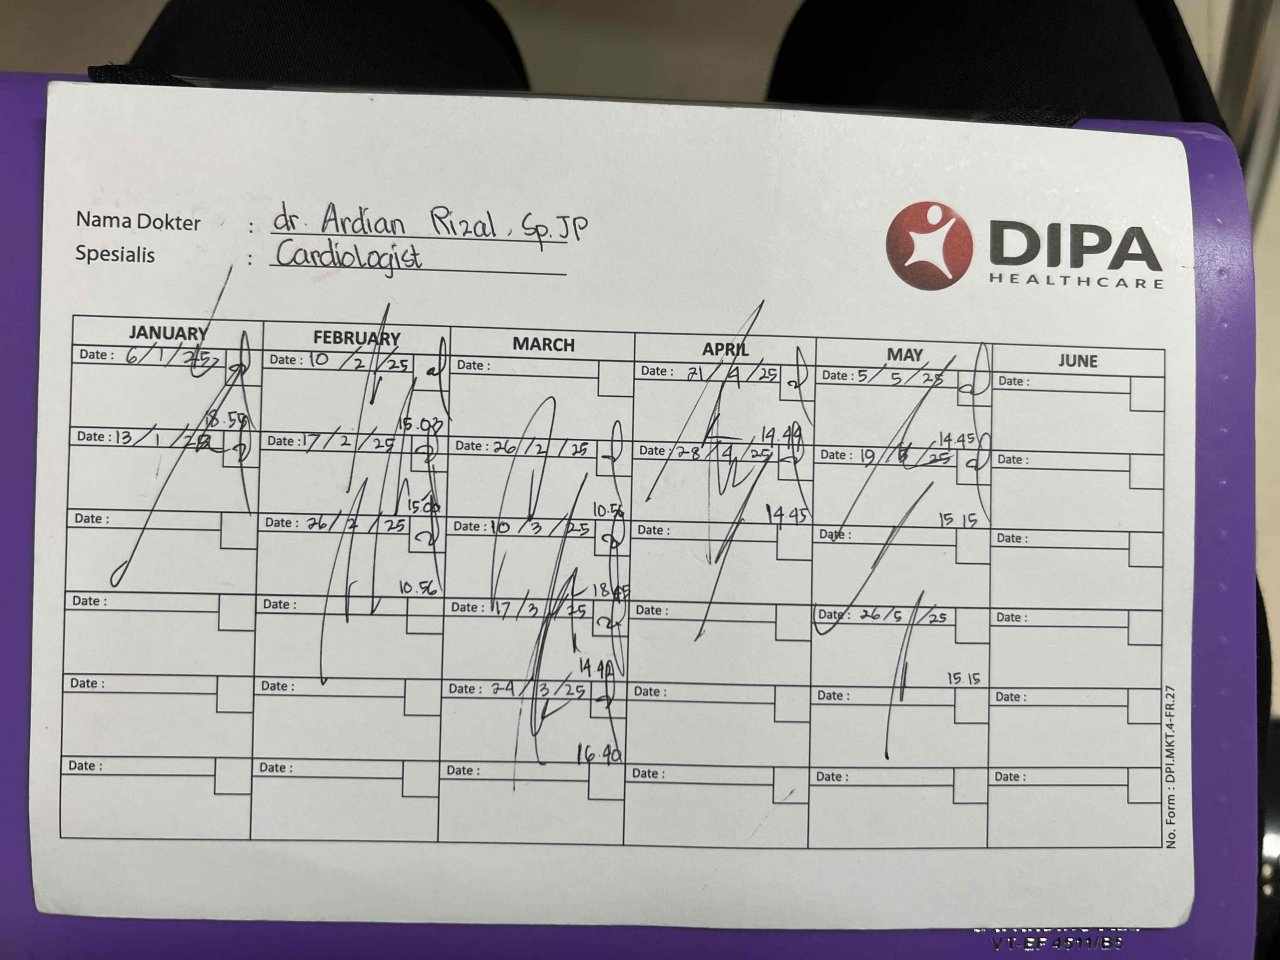 Nama Dokter : dr. Ardian Rizal, Sp.JP
Spesialis : Cardiologist
DIPA
HEALTHCARE
JANUARY FEBRUARY MARCH APRIL MAY JUNE
Date : 6/1/25 Date : 10/2/25 Date : Date : 21/4/25 Date : 5/5/25 Date :
18.55 15.03 14.49 14.45
Date : 13/1/25 Date : 17/2/25 Date : 26/2/25 Date : 28/4/25 Date : 19/5/25 Date :
15.00 10.56 14.45 15.15
Date : Date : 26/2/25 Date : 10/3/25 Date : Date : Date :
10.56 18.45
Date : Date : Date : 17/3/25 Date : Date : 26/5/25 Date :
14.42 15.15
Date : Date : Date : 24/3/25 Date : Date : Date :
16.40
Date : Date : Date : Date : Date : Date :
No. Form : DPI.MKT.4-FR.27
VT-BF 4911/B5